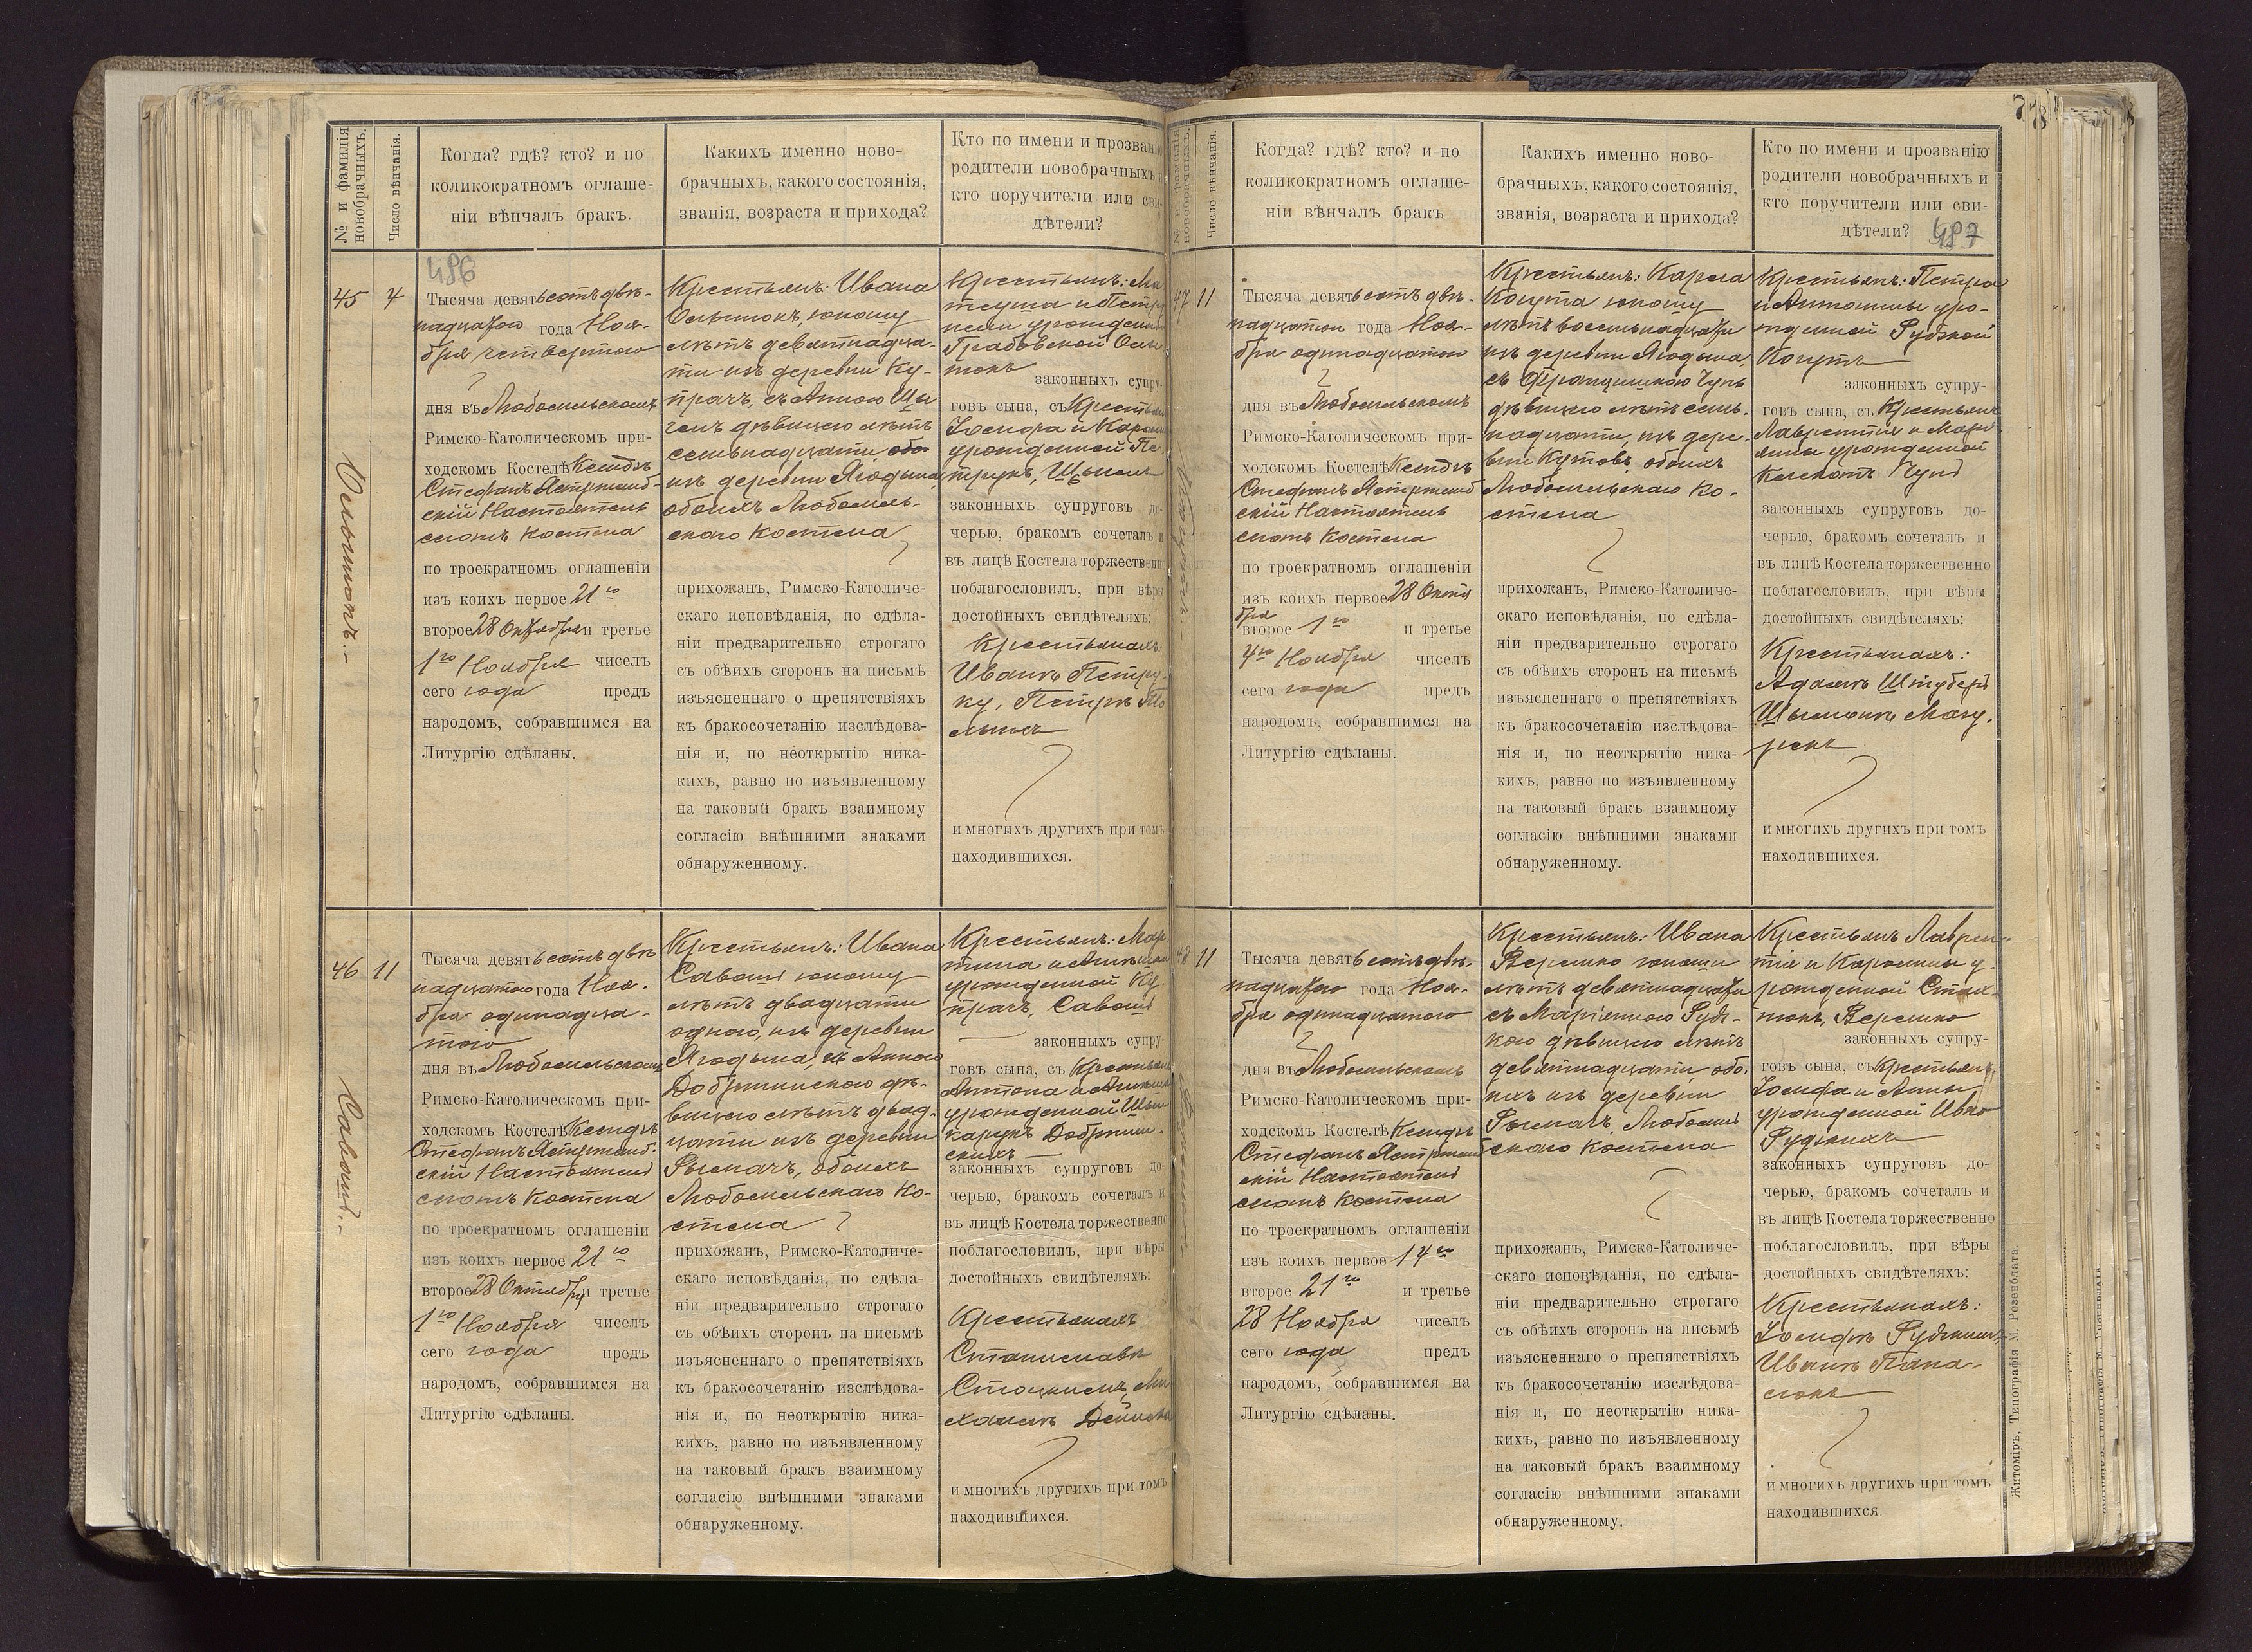 № и фамилія новобрачныхъ.
Число вѣнчанія.
Когда? гдѣ? кто? и по
коликократномъ оглаше-
ніи вѣнчалъ бракъ.
Какихъ именно ново-
брачныхъ, какого состоянія,
званія, возраста и прихода?
Кто по имени и прозванію
родители новобрачныхъ и
кто поручители или сви-
дѣтели?
486
45
4
Осьтюкъ.-
Тысяча девятьсотъ двѣ-
надцатого года Ноя-
бря четвертого
дня въ Любомльскомъ
Римско-Католическомъ при-
ходскомъ Костелѣ Ксендзъ
Стефанъ Ястржемб-
скій Настоятель
сногъ Костела
по троекратномъ оглашеніи
изъ коихъ первое 21го
второе 28 Октября и третье
1го Ноября чиселъ
сего года предъ
народомъ, собравшимся на
Литургію сдѣланы.
Крестьянъ: Ивана
юношу
лѣтъ девятнадца-
ти изъ деревни Ку-
трачъ, съ Анною
дѣвицею лѣтъ
семьнадцати
изъ деревни Ягодына,
обоихъ Любомль-
скаго Костела
прихожанъ, Римско-Католиче-
скаго исповѣданія, по сдѣла-
ніи предварительно строгаго
съ обѣихъ сторонъ на письмѣ
изъясненнаго о препятствіяхъ
къ бракосочетанію изслѣдова-
нія и, по неоткрытію ника-
кихъ, равно по изъявленному
на таковый бракъ взаимному
согласію внѣшними знаками
обнаруженному.
Крестьянъ: Ма
теуша и
урожденной
Грабовской
законныхъ супру-
говъ сына, съ Крестьянъ
Іосифа и
урожденной
законныхъ супруговъ до-
черью, бракомъ сочеталъ и
въ лицѣ Костела торжественно
поблагословилъ, при вѣры
достойныхъ свидѣтеляхъ:
Крестьянахъ:
Иванъ
Петръ
и многихъ другихъ при томъ
находившихся.
46
11
Савошъ.-
Тысяча девятьсотъ двѣ
надцатого года Ноя-
бря одинадца-
того
дня въ Любомльскомъ
Римско-Католическомъ при-
ходскомъ Костелѣ Ксендзъ
Стефанъ Ястржемб-
скій Настоятель
сногъ Костела
по троекратномъ оглашеніи
изъ коихъ первое 21го
второе 28 Октября и третье
1го Ноября чиселъ
сего года предъ
народомъ, собравшимся на
Литургію сдѣланы.
Крестьянъ: Ивана
Савошъ юношу
лѣтъ двадцати
одного, изъ деревни
Ягодына, съ Анною
дѣ-
вицею лѣтъ двад-
цати изъ деревни
Рымачъ, обоихъ
Любомльскаго Ко-
стела
прихожанъ, Римско-Католиче-
скаго исповѣданія, по сдѣла-
ніи предварительно строгаго
съ обѣихъ сторонъ на письмѣ
изъясненнаго о препятствіяхъ
къ бракосочетанію изслѣдова-
нія и, по неоткрытію ника-
кихъ, равно по изъявленному
на таковый бракъ взаимному
согласію внѣшними знаками
обнаруженному.
Крестьянъ: Мар
тина и
урожденной Ку-
трачъ, Савошъ
законныхъ супру-
говъ сына, съ Крестьянъ
Антона и
урожденной
законныхъ супруговъ до-
черью, бракомъ сочеталъ и
въ лицѣ Костела торжественно
поблагословилъ, при вѣры
достойныхъ свидѣтеляхъ:
Крестьянахъ
Станиславъ
и многихъ другихъ при томъ
находившихся.
78
№ и фамилія новобрачныхъ.
Число вѣнчанія.
Когда? гдѣ? кто? и по
коликократномъ оглаше-
ніи вѣнчалъ бракъ
Какихъ именно ново-
брачныхъ, какого состоянія,
званія, возраста и прихода?
Кто по имени и прозванію
родители новобрачныхъ и
кто поручители или сви-
дѣтели?
487
47
11
Тысяча девятьсотъ двѣ-
надцатого года Ноя-
бря одинадцатого
дня въ Любомльскомъ
Римско-Католическомъ при-
ходскомъ Костелѣ Ксендзъ
Стефанъ Ястржемб
скій Настоятель
сногъ Костела
по троекратномъ оглашеніи
изъ коихъ первое 28 Октя
бря
второе 1го и третье
4го Ноября чиселъ
сего года предъ
народомъ, собравшимся на
Литургію сдѣланы.
Крестьянъ: Кароля
Когута юношу
лѣтъ восемьнадцати
изъ деревни Ягодына,
съ Францишкою Чупъ
дѣвицею лѣтъ семь-
надцати, изъ дере-
вни Кутовъ, обоихъ
Любомльскаго Ко-
стела
прихожанъ, Римско-Католиче-
скаго исповѣданія, по сдѣла-
ніи предварительно строгаго
съ обѣихъ сторонъ на письмѣ
изъясненнаго о препятствіяхъ
къ бракосочетанію изслѣдова-
нія и, по неоткрытію ника-
кихъ, равно по изъявленному
на таковый бракъ взаимному
согласію внѣшними знаками
обнаруженному.
Крестьянъ: Петра
и Антонины уро-
жденной Рудзкой
Когутъ
законныхъ супру-
говъ сына, съ Крестьянъ
Лаврентія и Мари
янны урожденной
Чупъ
законныхъ супруговъ до-
черью, бракомъ сочеталъ и
въ лицѣ Костела торжественно
поблагословилъ, при вѣры
достойныхъ свидѣтеляхъ:
Крестьянахъ:
Адамъ
Мазу-
рекъ
и многихъ другихъ при томъ
находившихся.
48
11
Тысяча девятьсотъ двѣ-
надцатого года Ноя-
бря одинадцатого
дня въ Любомльскомъ
Римско-Католическомъ при-
ходскомъ Костелѣ Ксендзъ
Стефанъ Ястржемб
скій Настоятель
сногъ Костела
по троекратномъ оглашеніи
изъ коихъ первое 14го
второе 21го и третье
28 Ноября чиселъ
сего года предъ
народомъ, собравшимся на
Литургію сдѣланы.
Крестьянъ: Ивана
Верешко юноши
лѣтъ девятнадцати
съ Маріянною Рудз-
кою дѣвицею лѣтъ
девятнадцати, обо-
ихъ изъ деревни
Рымачъ, Любомль
скаго Костела
прихожанъ, Римско-Католиче-
скаго исповѣданія, по сдѣла-
ніи предварительно строгаго
съ обѣихъ сторонъ на письмѣ
изъясненнаго о препятствіяхъ
къ бракосочетанію изслѣдова-
нія и, по неоткрытію ника-
кихъ, равно по изъявленному
на таковый бракъ взаимному
согласію внѣшними знаками
обнаруженному.
Крестьянъ Лаврен-
тія и Каролины у-
рожденной
Верешко
законныхъ супру-
говъ сына, съ Крестьянъ
Іосифа и Анны
урожденной
Рудзкихъ
законныхъ супруговъ до-
черью, бракомъ сочеталъ и
въ лицѣ Костела торжественно
поблагословилъ, при вѣры
достойныхъ свидѣтеляхъ:
Крестьянахъ:
Іосифъ
Иванъ Пана-
сюкъ
и многихъ другихъ при томъ
находившихся.
Житоміръ, Типографія М. Розенблата.